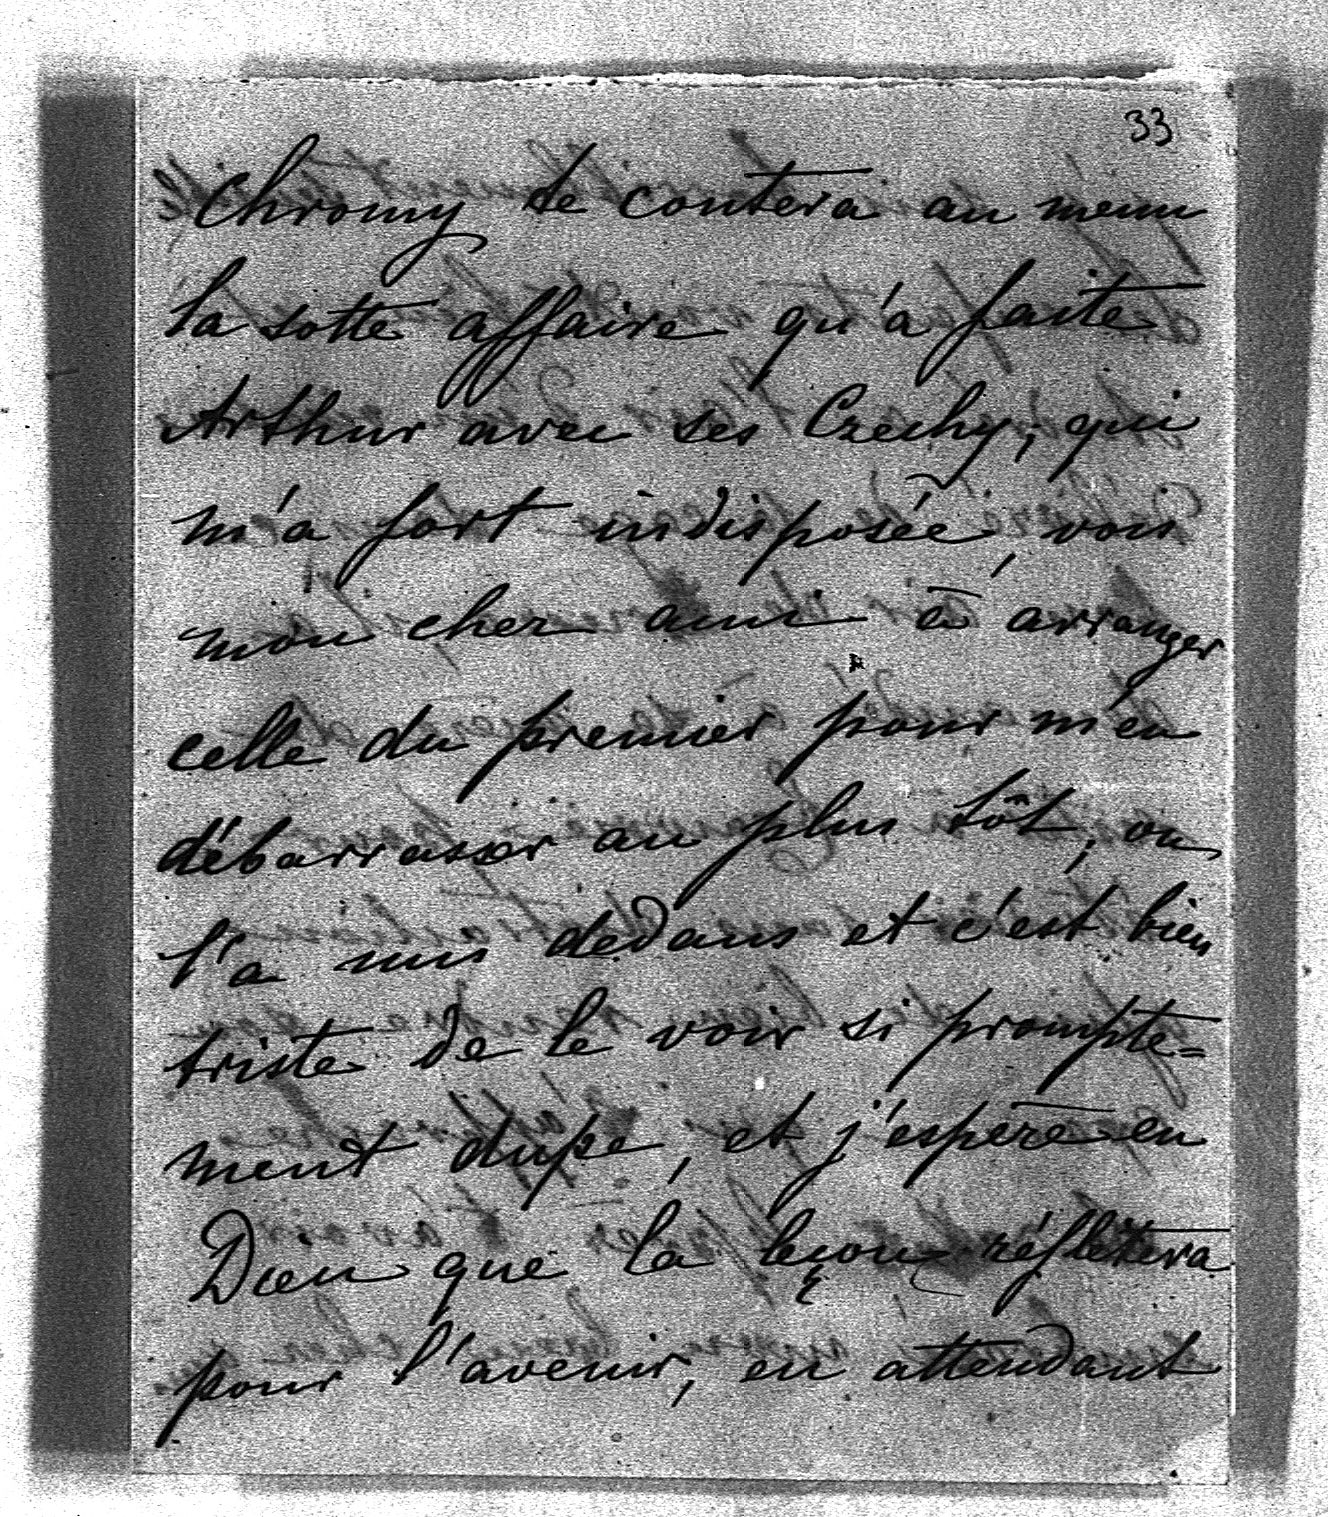 33
Chromy te contera au menu
la sotte affaire qu'a faite
Arthur avec ses Czechy, qui
m'a fort indisposée, vois
mon cher ami à arranger
celle du premier pour m'en
débarrasser au plus tôt, on
l'a mis dedans et c'est bien
triste de le voir si prompte=
ment dupe, et j'espère en
Dieu que la leçon réfletera
pour l'avenir, en attendant